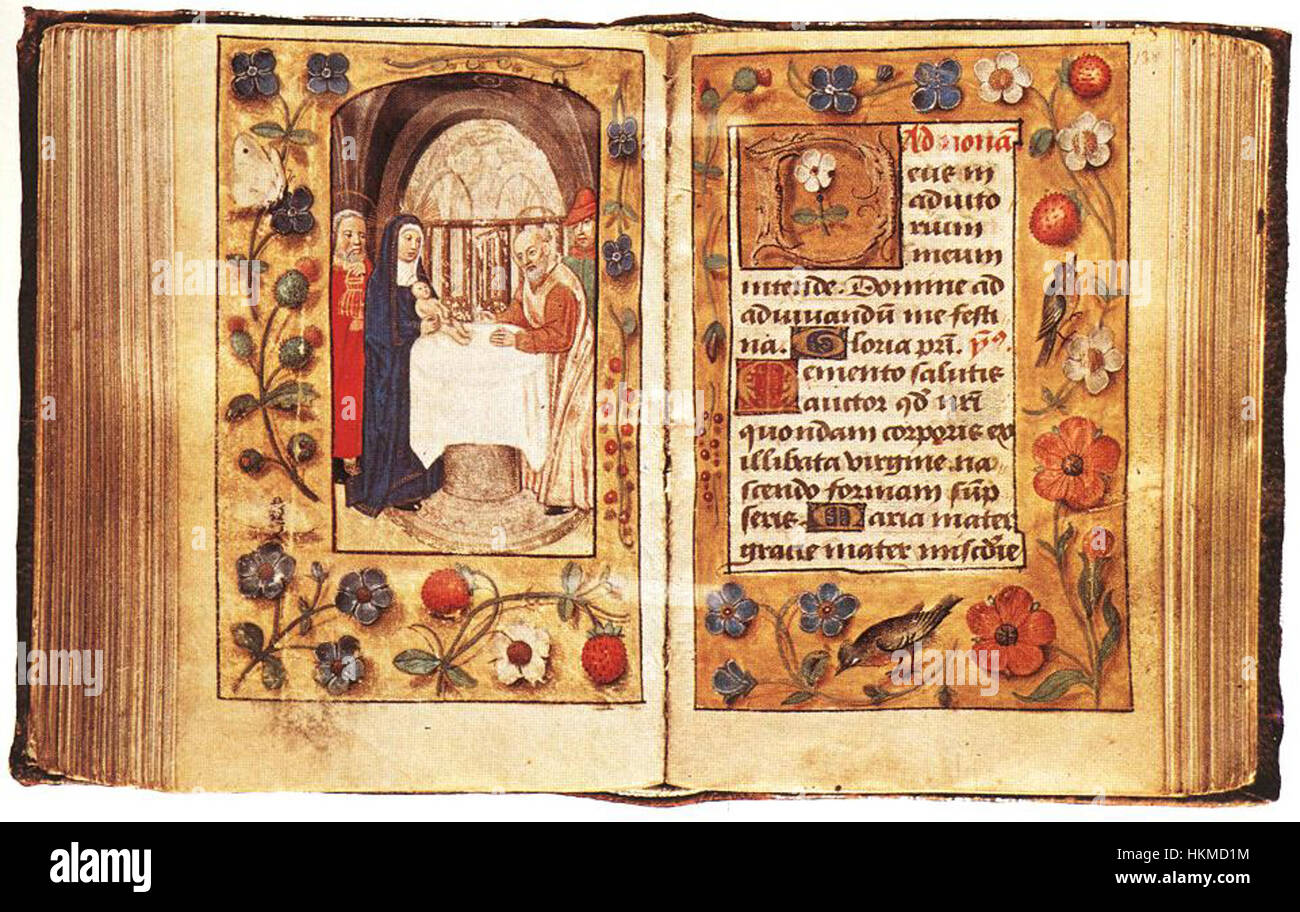 Ad nonā
eus in
adiuto
rium
meum
intende. Domine ad
adiuuandū me festi
na. Gloria pr̄i. ps̄.
Memento salutis
auctor qd̄ nr̄i
quondam corporis ex
illibata virgine na
scendo formam sūp
seris. Maria mater
gratie mater misc̄die
138
alamy stock photo
HKMD1M
www.alamy.com